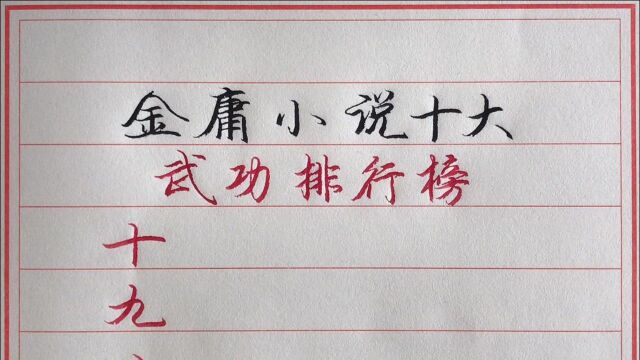 金庸小说十大
武功排行榜
十
九